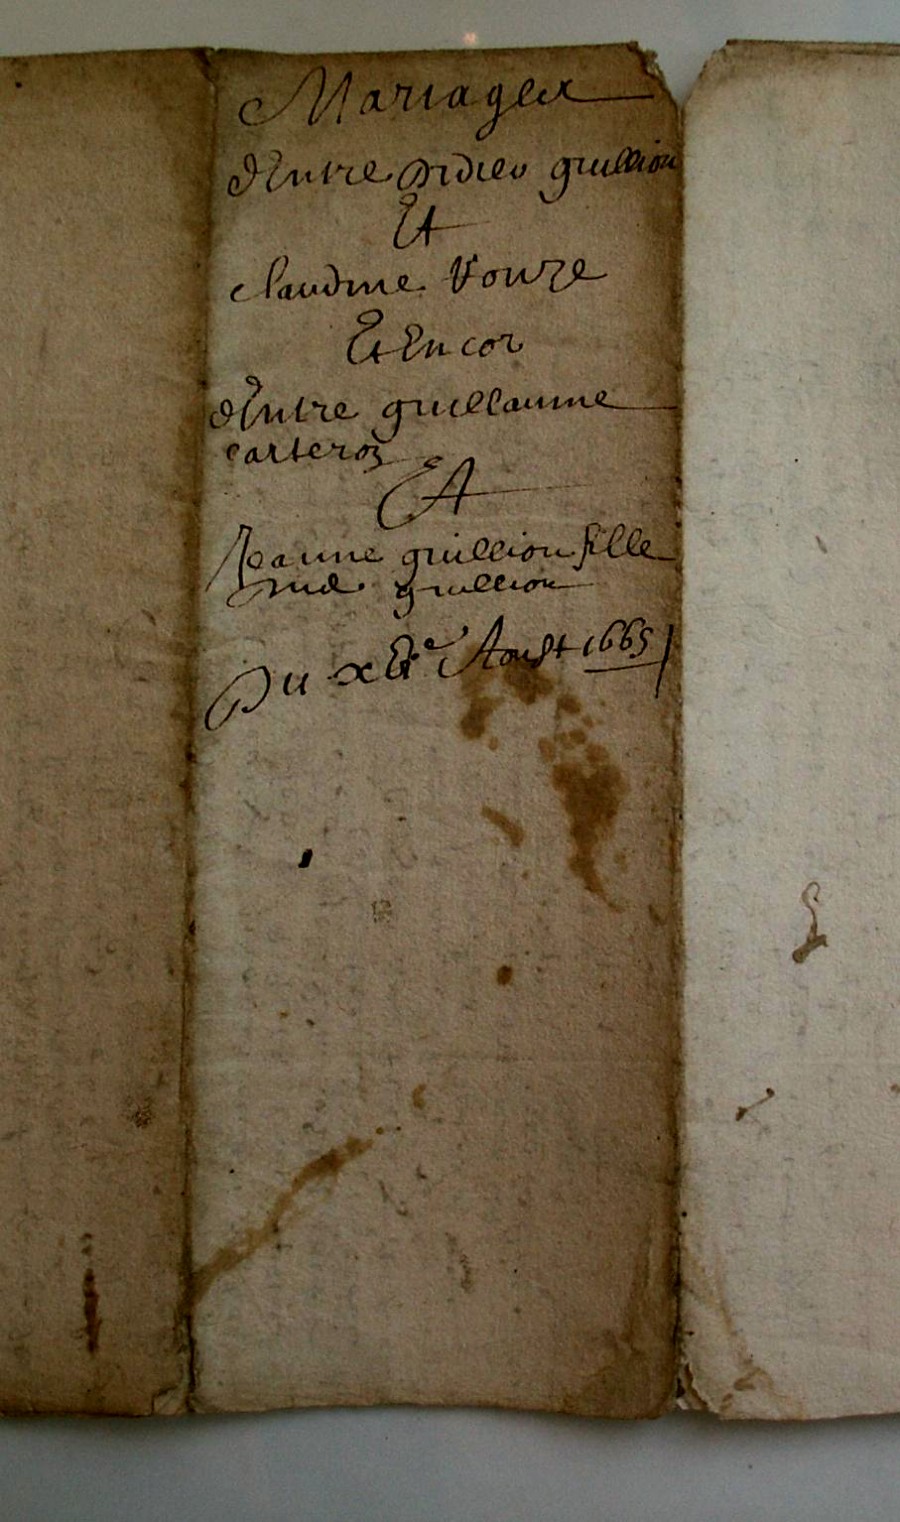 Mariages
d'Entre Didier guillion
Et
Claudine Vouze
Et Encor
d'Entre guillaume
carteron
Et
Jeanne guillion fille
guillion
Du Aoust 1665